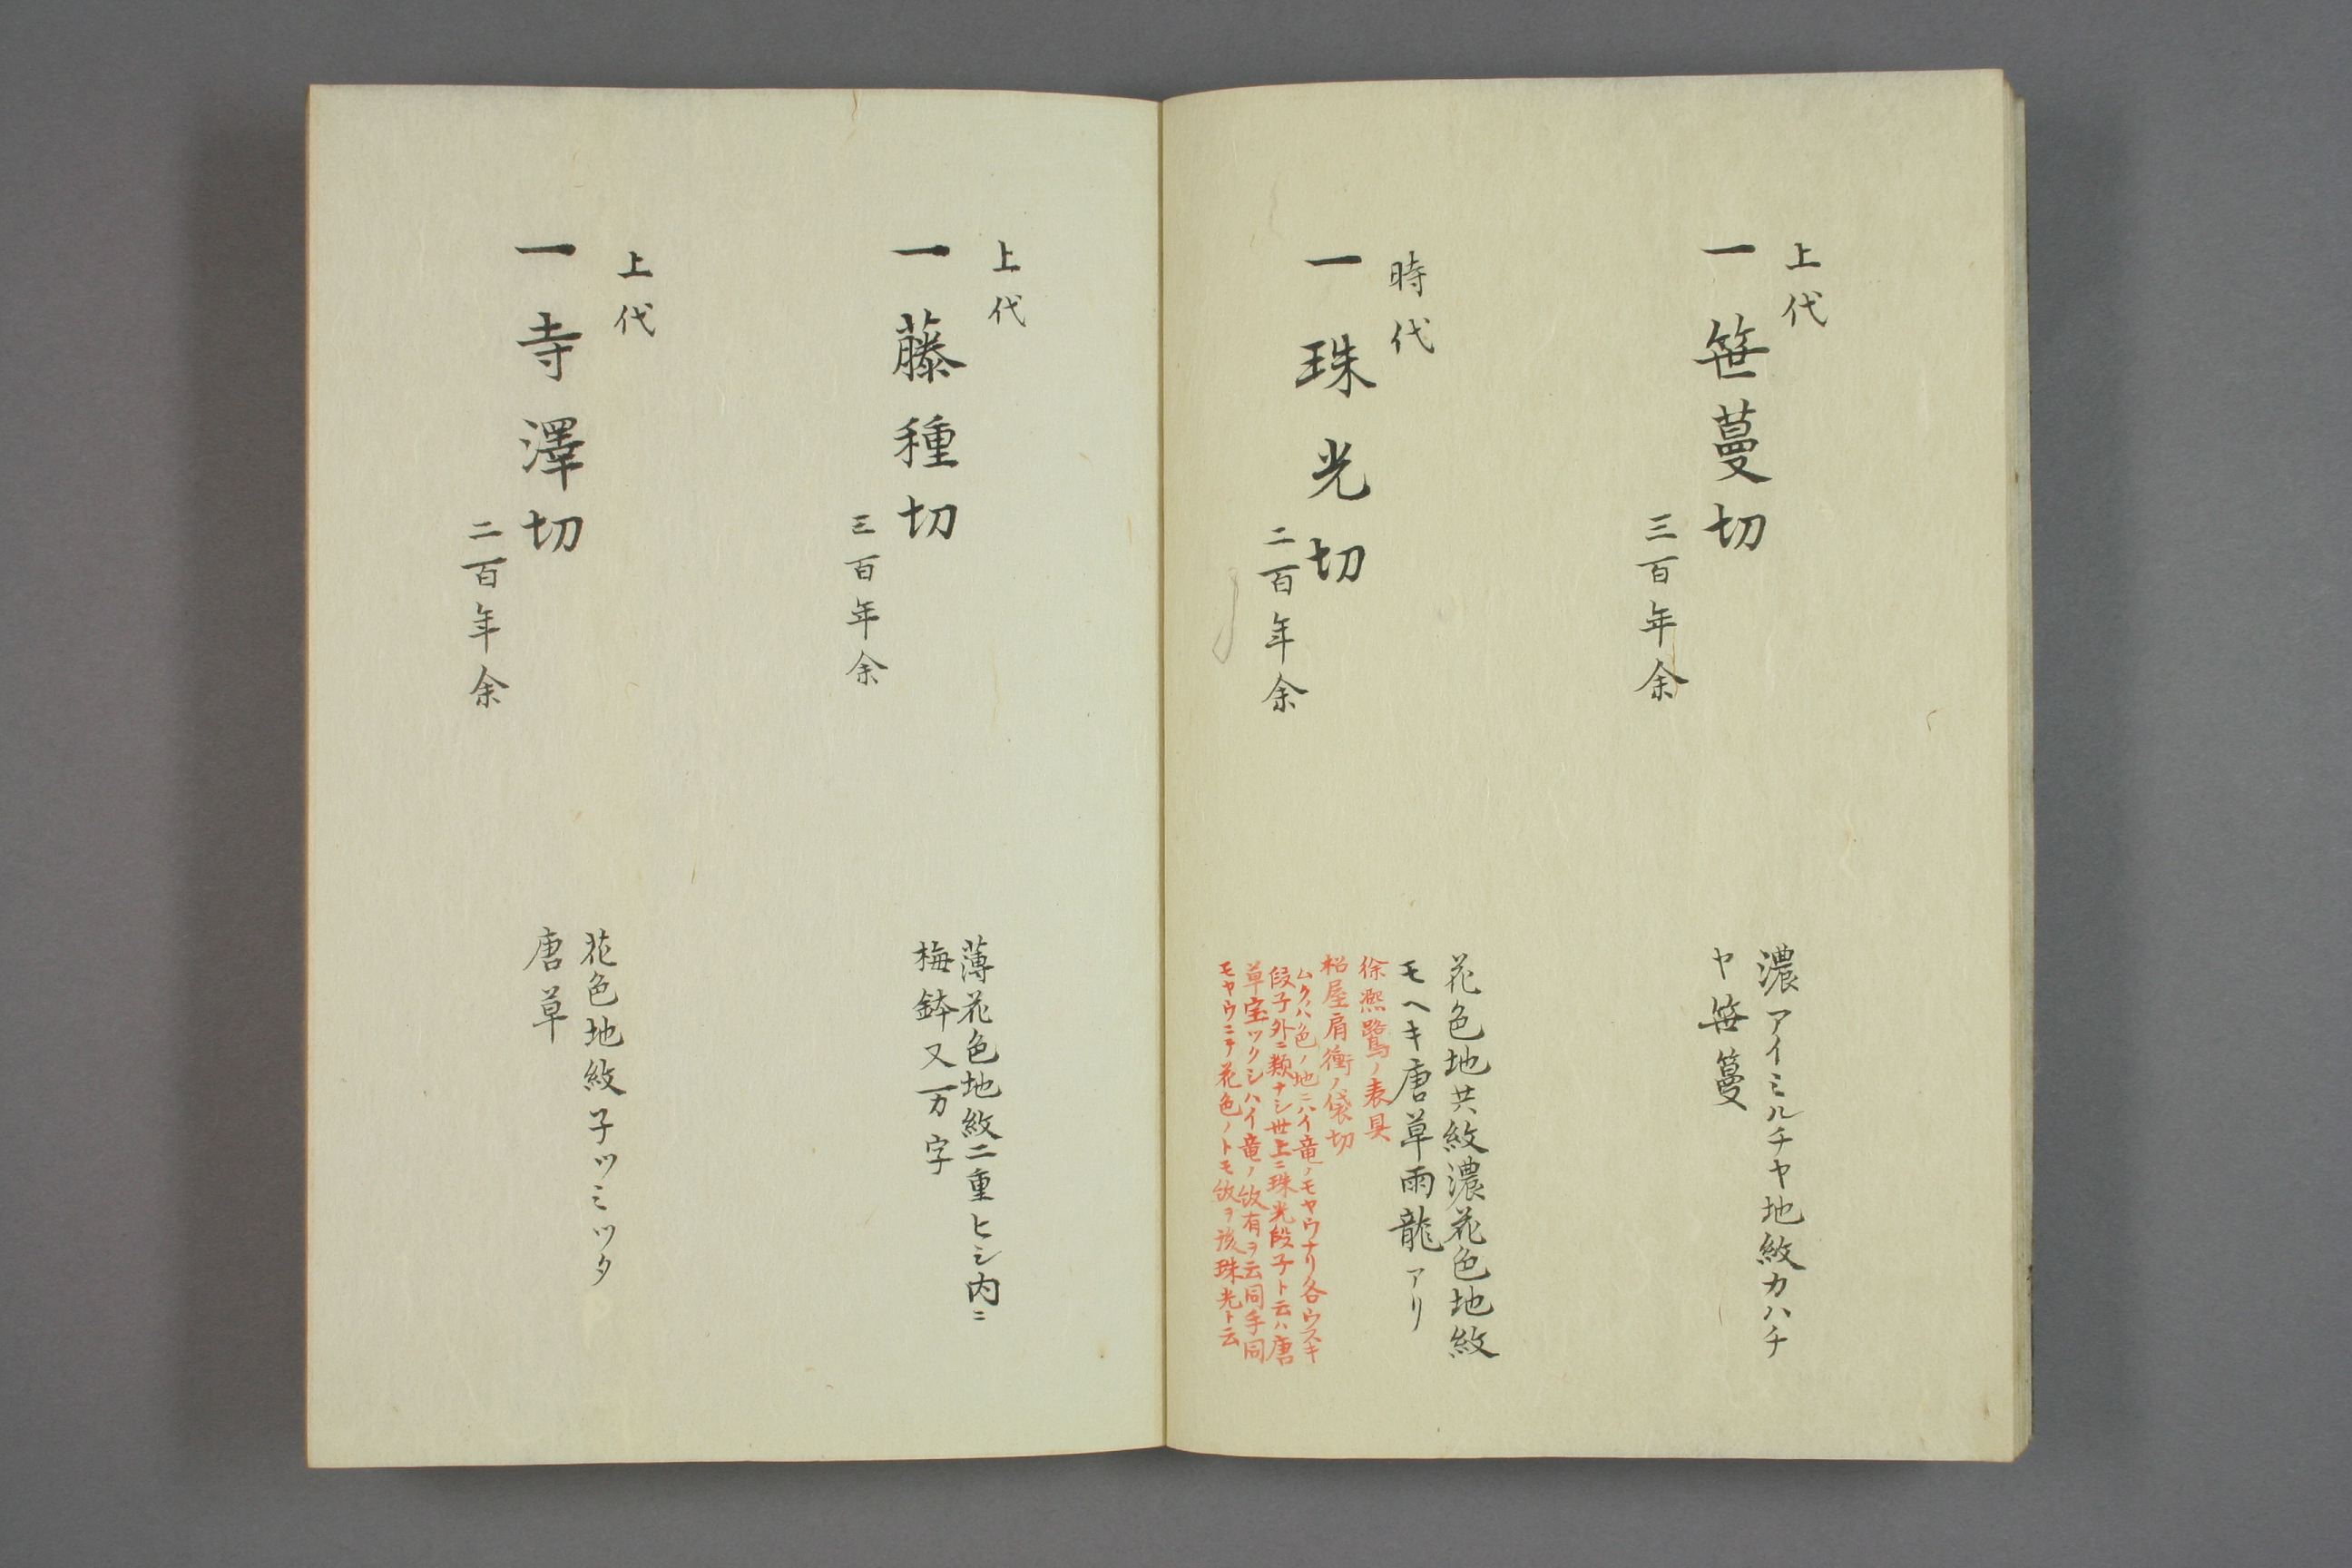 上代
一 笹蔓切
三百年余
濃アイミルチヤ地紋カハチ
ヤ笹蔓
時代
一 珠光切
二百年余
花色地共紋濃花色地紋
モヘキ唐草雨龍アリ
徐熈鷺ノ表具
松屋肩衝ノ袋切
ムクハ色ノ地ニハイ竜ノモヤウナリ各ウスキ
段子外ニ類ナシ世上ニ珠光段子ト云ハ唐
草宝ツクシハイ竜ノ紋有ヲ云同手同
モヤウニテ花色ノトモ紋ヲ珠光ト云
上代
一 藤種切
三百年余
薄花色地紋二重ヒシ内ニ
梅鉢又万字
上代
一 寺澤切
二百年余
花色地紋子ツミツタ
唐草